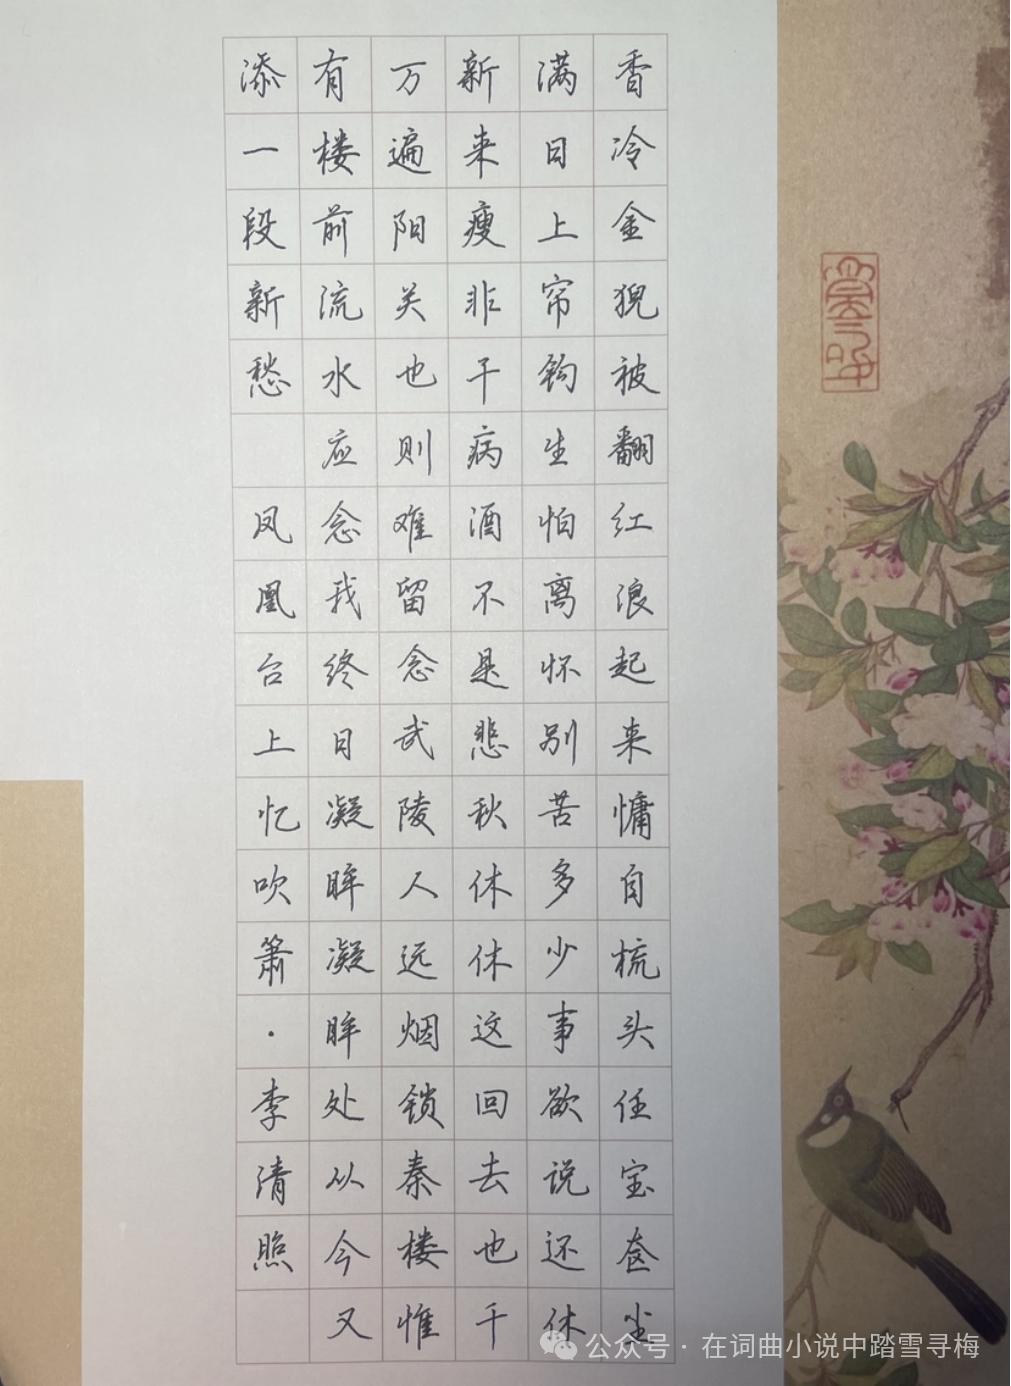 香冷金猊被翻红浪起来慵自梳头任宝奁尘
满日上帘钩生怕离怀别苦多少事欲说还休
新来瘦非干病酒不是悲秋休休这回去也千
万遍阳关也则难留念武陵人远烟锁秦楼惟
有楼前流水应念我终日凝眸凝眸处从今又
添一段新愁 凤凰台上忆吹箫·李清照
公众号·在词曲小说中踏雪寻梅